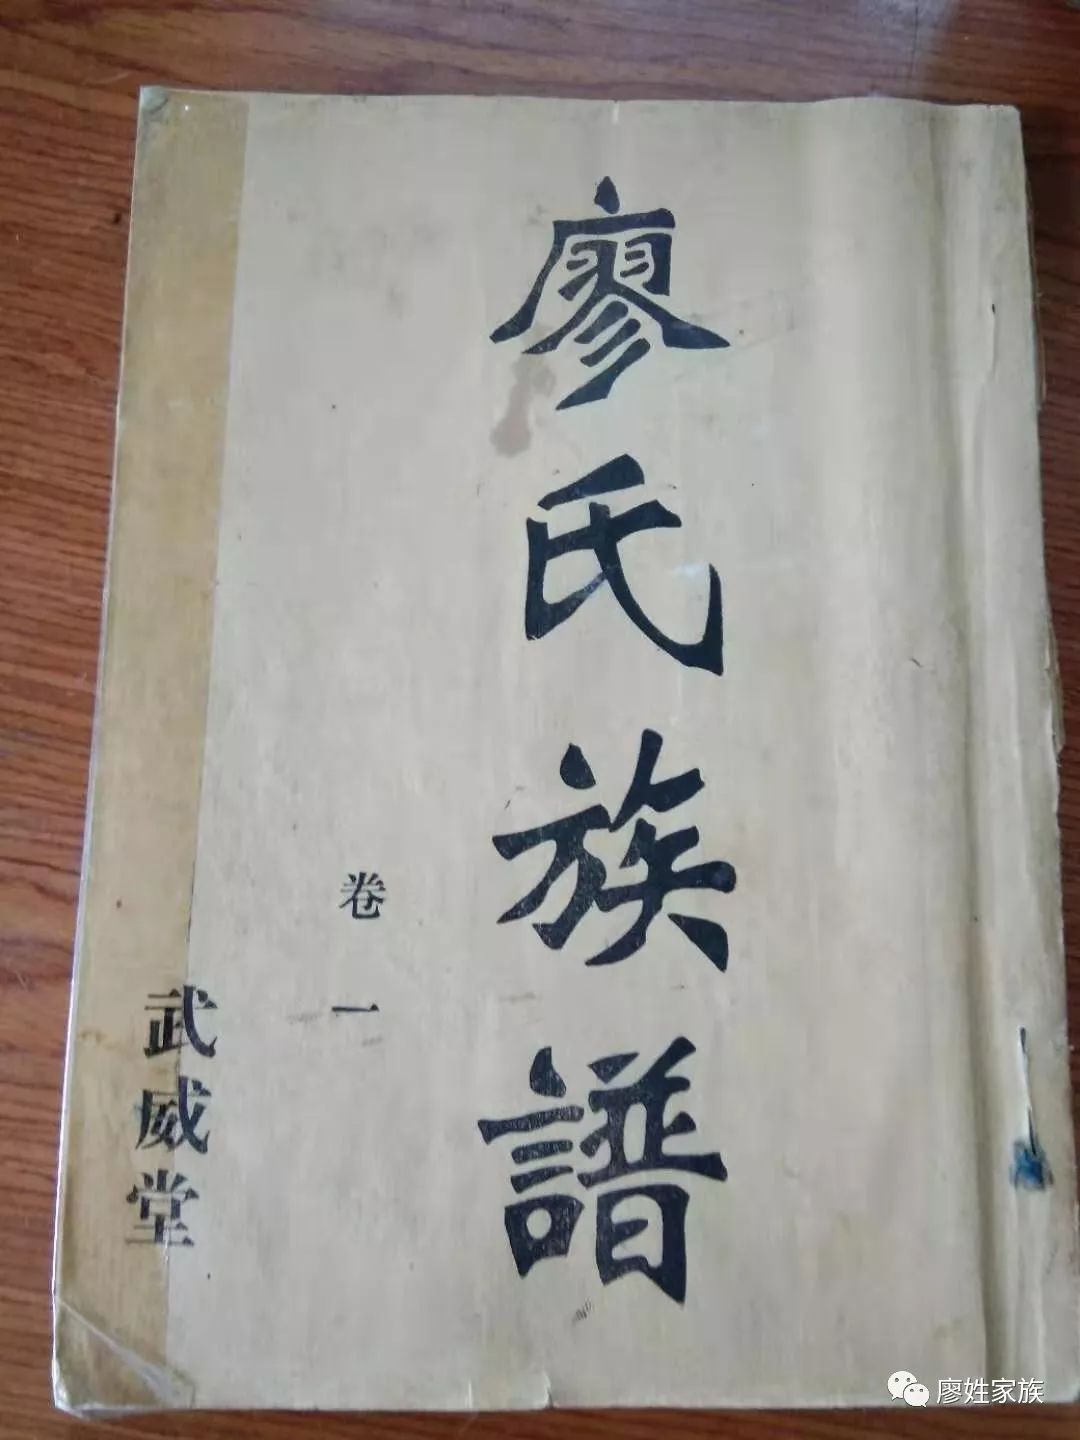 廖氏族譜
卷一
武威堂
廖姓家族